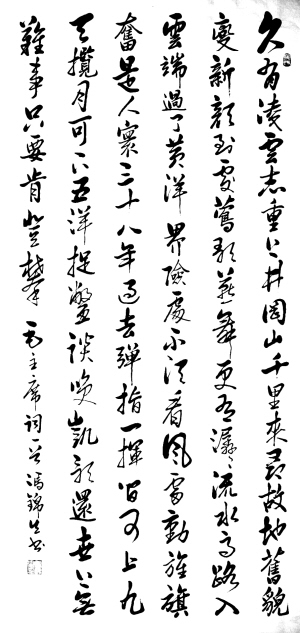 久有凌雲志重上井岡山千里來尋故地舊貌
變新顏到處鶯歌燕舞更有潺々流水高路入
雲端過了黃洋界險處不須看風雷動旌旗
奮是人寰三十八年過去彈指一揮間可上九
天攬月可下五洋捉鱉談笑凱歌還世上無
難事只要肯登攀 毛主席詞一首 馮錦生書